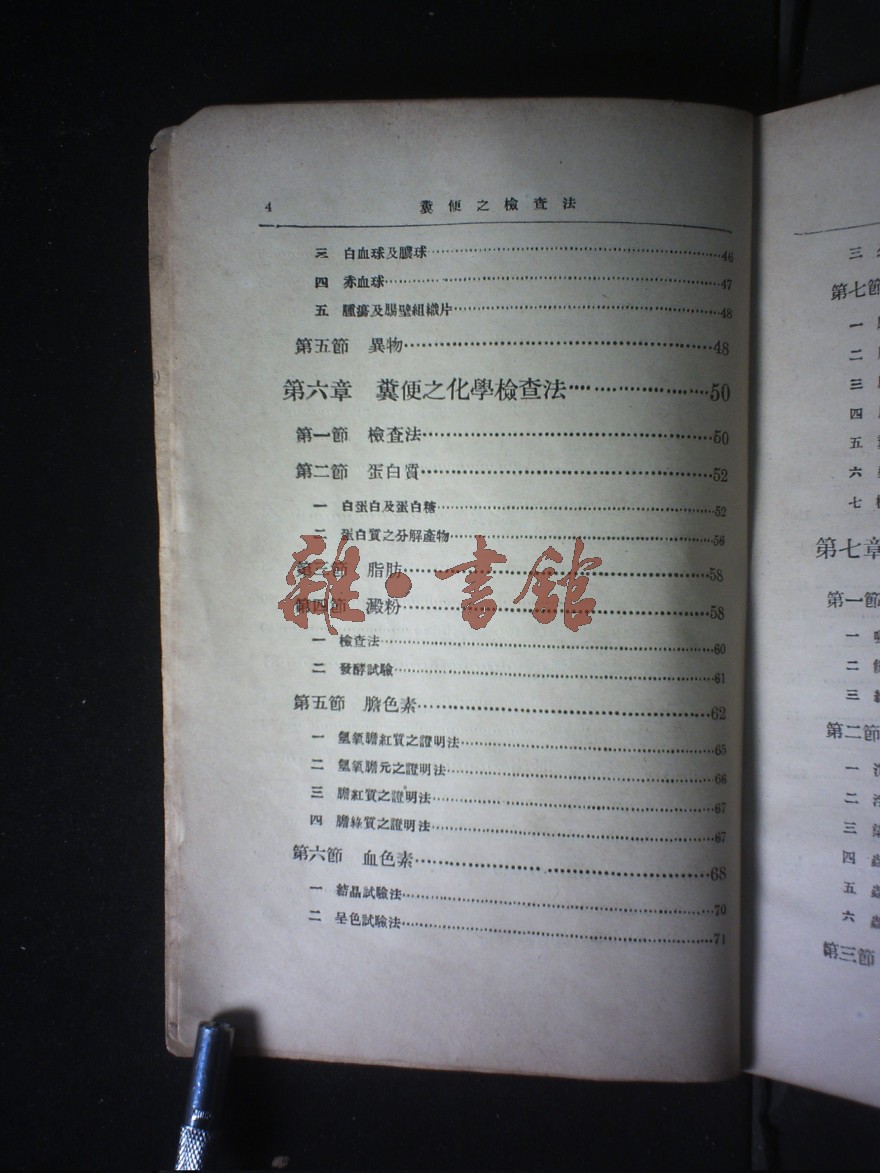 4 糞便之檢查法
三 白血球及膿球 46
四 赤血球 47
五 腫瘍及腸壁組織片 48
第五節 異物 48
第六章 糞便之化學檢查法 50
第一節 檢查法 50
第二節 蛋白質 52
一 白蛋白及蛋白糖 52
二 蛋白質之分解產物 56
第三節 脂肪 58
第四節 澱粉 58
一 檢查法 60
二 發酵試驗 61
第五節 膽色素 62
一 氫氧膽紅質之證明法 65
二 氫氧膽元之證明法 66
三 膽紅質之證明法 67
四 膽綠質之證明法 67
第六節 血色素 68
一 結晶試驗法 70
二 呈色試驗法 71
雜·書館
三
第七節
一
二
三
四
五
六
七
第七章
第一節
一
二
三
第二節
一
二
三
四
五
六
第三節